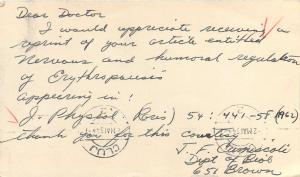 Dear Doctor
I would appreciate receiving a
reprint of your article entitled
Nervous and humoral regulation
of Erythropoiesis
appearing in:
J. Physiol. (Paris) 54: 441-58 (1962)
thank you for this courtesy
J. F.
Dept of Biol
651 Brown
CLUJ